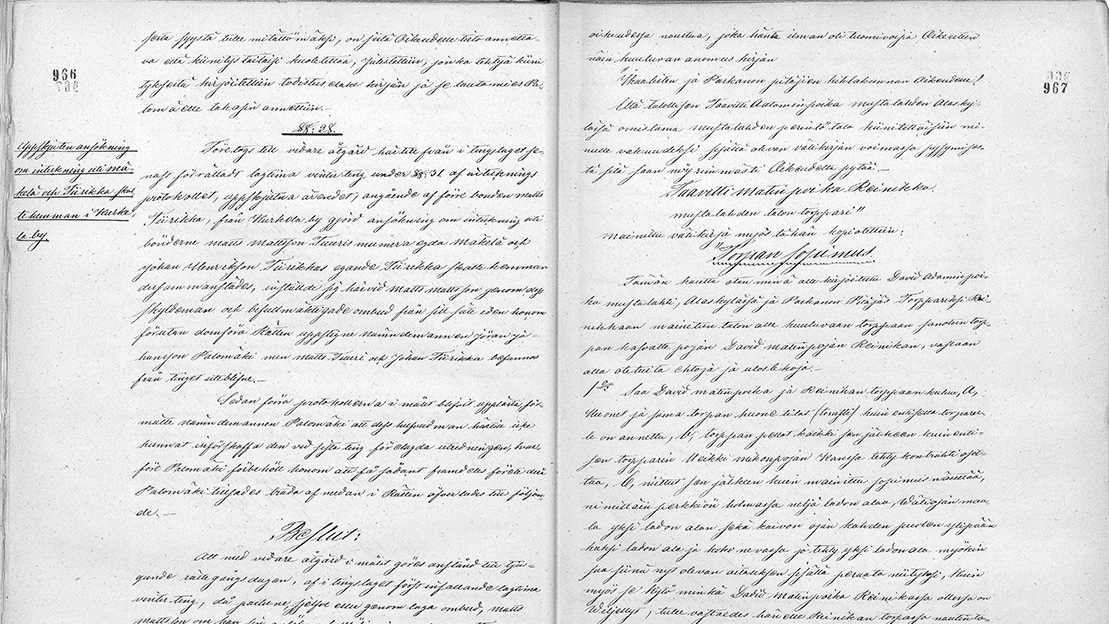 966
sesta syystä tulle mitättömäksi, on siitä Oikeudelle tieto annetta-
va että kiinitys taitaisi kuoletettaa, julistettiin, joista tehtyä kiini
tyksestä kirjoitettiin todistus
lomäelle takasin annettiin.—
§: 28.
Uppskjuten ansökning
om inteckning uti Mä-
kelä och Tiirikka skat
te hemman i Kurke-
la by.
Företogs till vidare åtgärd håitills från i tingslaget se-
nast förrättadt lagtima vinterting under §: 31 af intecknings
protokollet, uppskjutna ärendet, angående af förre bonden Matts
Tiirikka, från Kurkela by gjord ansökning om inteckning uti
bönderne Matts Mattsson Tuuris numera egda Mäkelä och
Johan Henriksson Tiirikkas egande Tiirikka skatte hemman
dersammanstädes, instälde sig härvid Matts Mattsson genom
skyldeman och befullmäktigade ombud från sitt säte
förutan domföra Rätten uppstigne nämndemannen Jöran Jo-
hansson Palomäki men Matts Tuuri och Johan Tiirikka befunnos
från tinget uteblifne.—
Sedan förra protokollerna i målet blifvit upplästa, för-
mälte nämndemannen Palomäki att dess hufvudman härtills icke
hunnat införskaffa den vid sista ting förelagda utredningen, hvar-
före Palomäki förbehöll honom att få sådant framdeles förete
Palomäki tillsades träda af medan i Rätten öfverlades till följan
de.—
Beslut:
Att med vidare åtgärd i målet göres anstånd till tju-
gunde rättegångsdagen, af i tingslaget först infallande lagtima
vinterting, då parterne sjelfve eller genom laga ombud, Matts
967
oikeudessa noustua, joka häntä ilman oli tuomivoissa Oikeuteen
näin kuuluvan anomus kirjan
"Ikaalisten ja Parkanon pitäjien kihlakunnan Oikeudelle!
Että talollisen Taavetti Aadaminpoika Mustalahden Alasky-
lässä omistama Mustalahden perintö talo kiinitettäisiin mi-
nulle vakuudeksi sisällä olevan välikirjan voimassa pysymises-
tä sitä saan nöyrimmästi Oikeudelta pytää.—
Taavetti Matinpoika Reinikka.
Mustalahden talon torppari"
Mainittu välikirja myös tähän kopioitettiin:
"Torpan sopimus
Tämän kautta olen minä alle kirjoitettu David Adaminpoi-
ka Mustalahti, Alaskylässä ja Parkanon Pitäjäs Torppariksi
nikkaan mainitun talon alle kuuluvaan torppaan sanotun tor-
pan kasvatte pojan David Matinpojan Reinikan, vastaan
alla oletuita ehtoja ja ulosteikoja.
1:ksi Saa David Matinpoika ja Reinikan torppaan kuluu, A,
Huonet ja sama torpan huone tilat (tomtti) kuin entiselle torparil-
le on annettu, B, torppan pellot kaikki sen jälkeen kuin enti-
sen torpparin Heikki Mikonpojan kanssa tehty kontrahti osot-
taa, C, niittut sen jälkeen kuin mainittu sopimus määrää,
nimittäin perkkiön holmassa neljä ladon alaa, Wätiojan maa
la yksi ladon alan sekä kaivon ojan kahden puolen ylipään
kaksi ladon ala ja koko nevassa jo tehty yksi ladon ala myöskin
saa siinä nyt olevan aitauksen sisältä perata niityksi, kuin
myös se kytö minkä David Matinpoika Reinikassa ollessa on
Viljellyt, tulee vastaedes hän elle Reinikan torpassa nautin-ta-